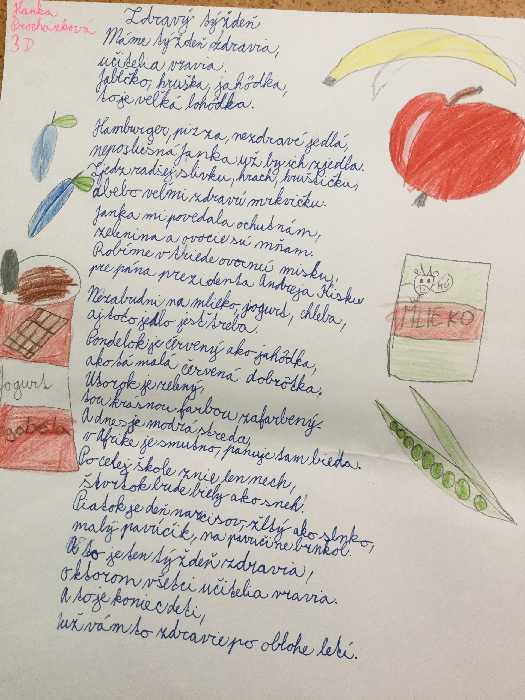 Hanka
Procházková
3D
Zdravý týždeň
Máme týždeň zdravia,
učitelia vravia.
Jabĺčko, hruška, jahôdka,
to je veľká lahôdka.
Hamburger, pizza, nezdravé jedlá,
neposlušná Janka už by ich zjedla.
Zjedz radšej slivku, hrach, hruštičku,
alebo veľmi zdravú mrkvičku.
Janka mi povedala ochutnám,
zelenina a ovocie sú mňam.
Robíme v triede ovocnú misku,
pre pána prezidenta Andreja Kisku
Nezabudni na mlieko, jogurt, chleba,
aj toto jedlo jesť treba.
Pondelok je červený ako jahôdka,
ako tá malá červená dobrôtka.
Utorok je zelený,
tou krásnou farbou zafarbený.
A dnes je modrá streda,
v Afrike je smutno, panuje tam bieda.
Po celej škole znie len nech,
štvrtok bude biely ako sneh.
Piatok je deň narcisov, žltý ako slnko,
malý pavúčik, na pavučine brnkol.
A to je ten týždeň zdravia,
o ktorom všetci učitelia vravia.
A to je koniec deti,
už vám to zdravie po oblohe letí.
MLIEKO
Jogurt